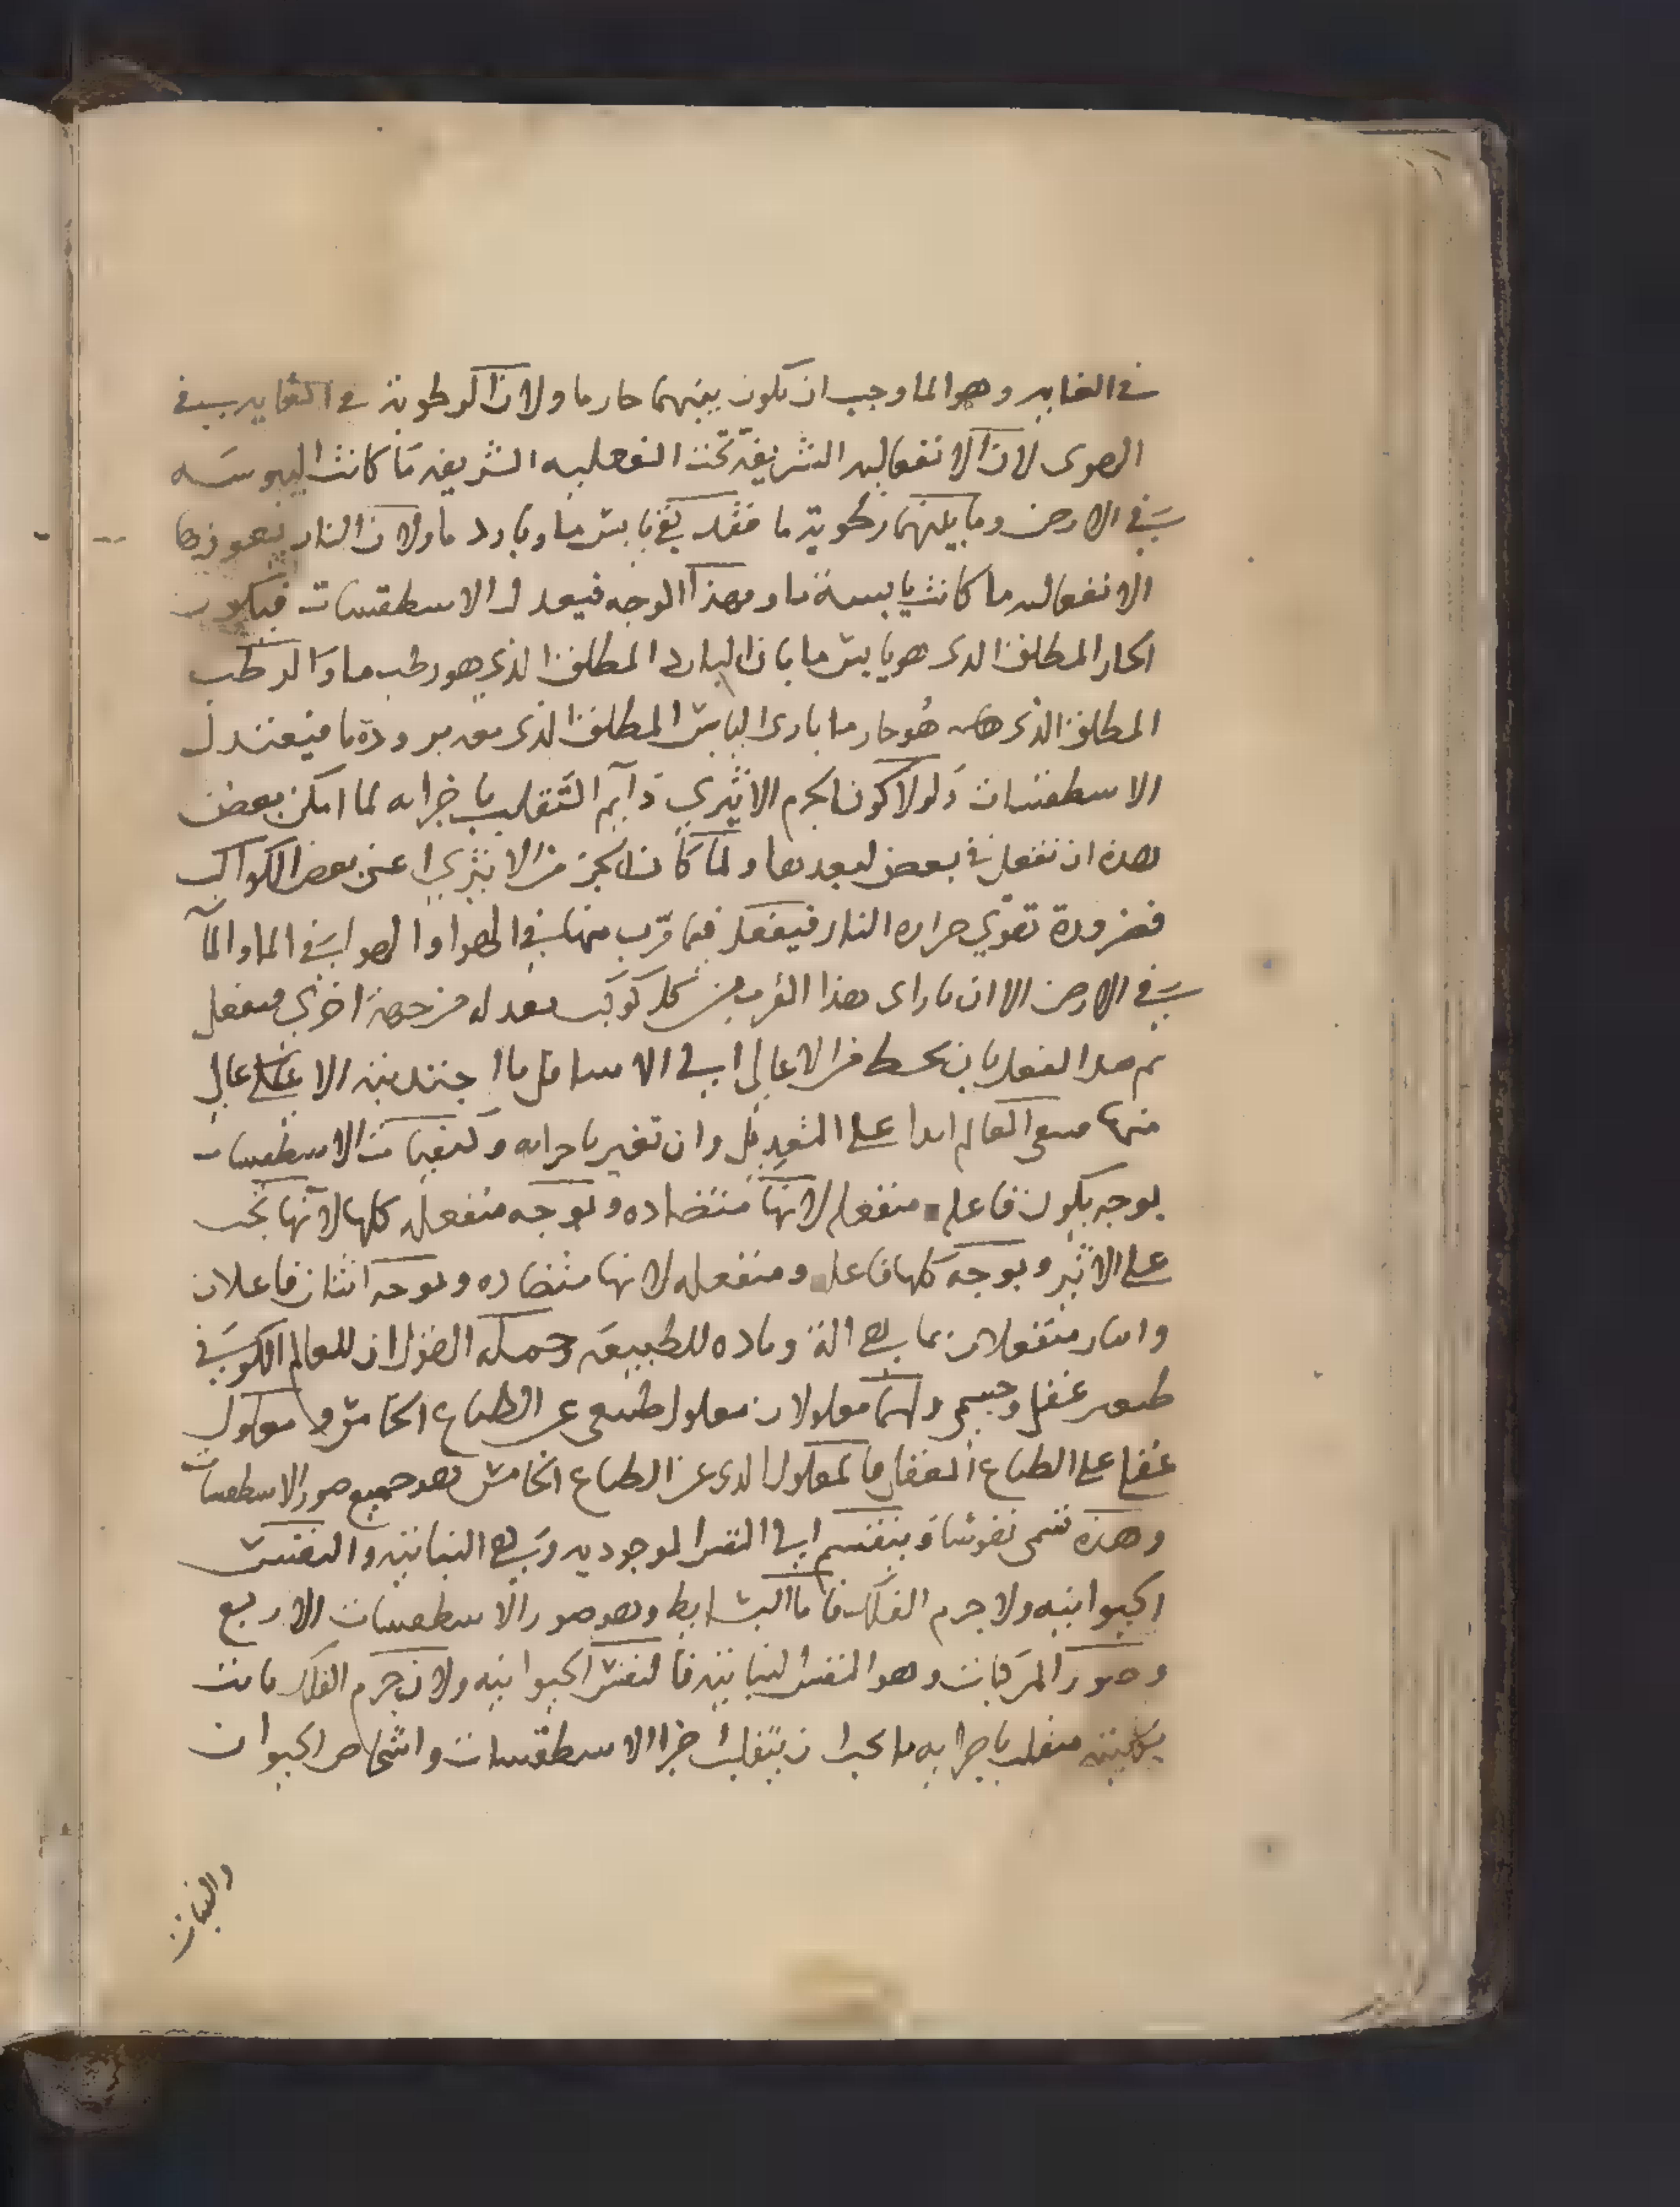 في الغايه وهو الما وجب ان يكون بينهما حار ما ولان الرطوبة في الغايه
الهوى لان الانفعاليه الشريفة تحت الفعليه الشريفه ما كانت اليبوسه
في الارض وما بينهما رطوبة ما فقد بقي يابس ما وبارد ما ولان النار
الانفعاليه ما كانت يابسة ما وبهذا الوجه فيعدل الاسطقسات فيكون
الحار المطلق الذى هو يابس ما بازا البارد المطلق الذي هو رطب ما والرطب
المطلق الذى هو حار ما بازى اليابس المطلق الذى معه برودة ما فيعتدل
الاسطقسات ولولا كون الجرم الاثيري دآيم التقلب باجزايه لما امكن بعض
هذه ان تفعل في بعض لبعدها ولما كان الجز من الاثيري اعني بعض الكواكب
فضرورة تقوي حراره النار فيفعل فيما قرب منها في الهوا والهوا في الما والمآ
في الارض الا ان بازاى هذا القرب من كل كوكب بعد له من جهة اخرى فيفعل
ثم هذا الفعل بان يحط من الاعالي الي الاسافل ما اجتذبته الاعالي
منها فيبقى العالم ابدا على التعديل وان تغير باجزايه وكيفيات الاسطقسات
بوجه يكون فاعله منفعله لانها متضاده وبوجه منفعله كلها لانها تحت
على الاثير وبوجه كلها فاعله ومنفعله لانها متضاده وبوجه اثنان فاعلان
واثنان منفعلان بما هي الة وماده للطبيعه وجملة القول ان للعالم الكرى في
طبعين عقلي وجسمى ولهما معلولان معلول طبيعى عن الطباع الخامس ومعلول
عقلي على الطباع العقلي فالمعلول الذى عن الطباع الخامس هو جميع صور الاسطقسات
وهذه تسمى نفوسا وينقسم الي النفس الموجوديه وهي النباتيه والنفس
الحيوانيه ولا جرم الفلك فاما البسايط وهو صور الاسطقسات الاربع
وصور المركبات وهو النفس النباتيه فالنفس الحيوانيه ولان جرم الفلك ثابت
بكليته متقلب باجزايه ما يجب ان يتقلب اجزا الاسطقسات واشخاص الحيوان
والنبات